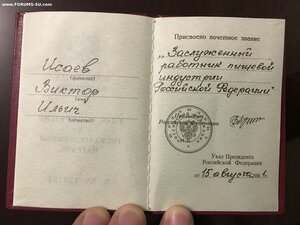 www.FORUMS-SU.com
Исаев
(фамилия)
Виктор
(имя)
Ильич
(отчество)
Присвоено почетное звание
„Заслуженный
работник пищевой
индустрии
Российской Федерации"
Президент
Российской Федерации
Указ Президента
Российской Федерации
от 15 августа 200